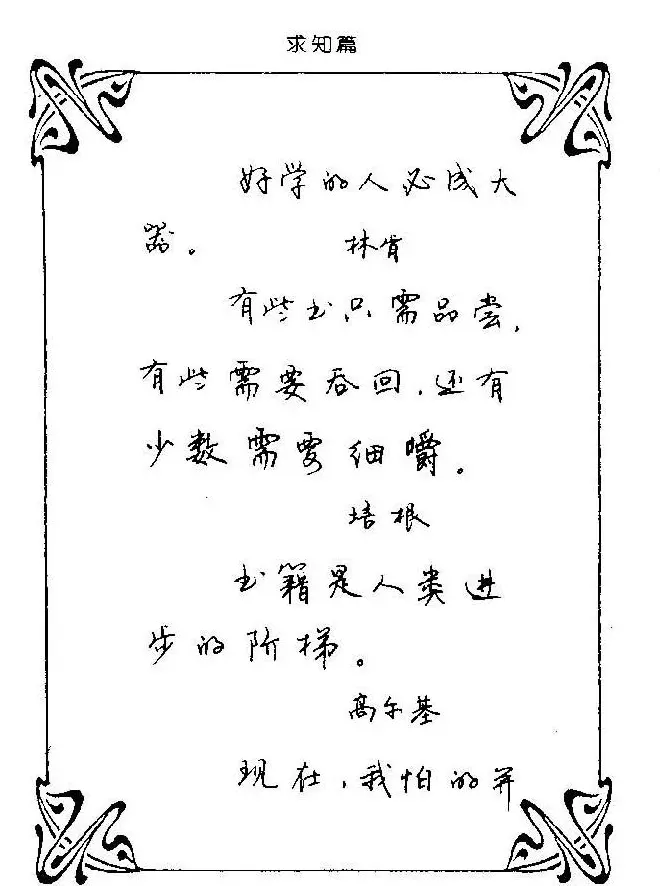 求知篇
好学的人必成大
器。 林肯
有些书只需品尝,
有些需要吞回,还有
少数需要细嚼。
培根
书籍是人类进
步的阶梯。
高尔基
现在,我怕的并